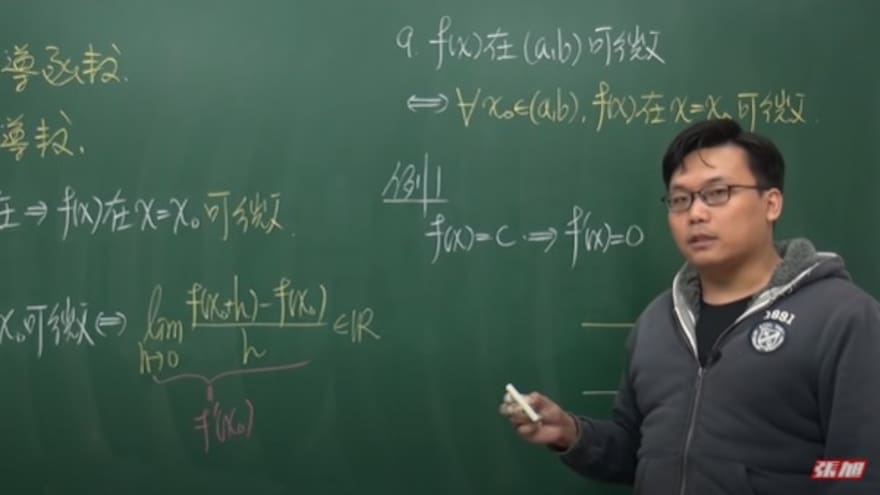 導函數.
導數.
在 ⇒ f(x)在x=x₀可微.
x₀可微 ⇔ lim_{h→0} \frac{f(x₀+h)-f(x₀)}{h} ∈ℝ
f'(x₀)
9. f(x)在(a,b)可微
⇔ ∀x₀∈(a,b), f(x)在x=x₀可微.
例1
f(x)=C ⇒ f'(x)=0
1891
張旭